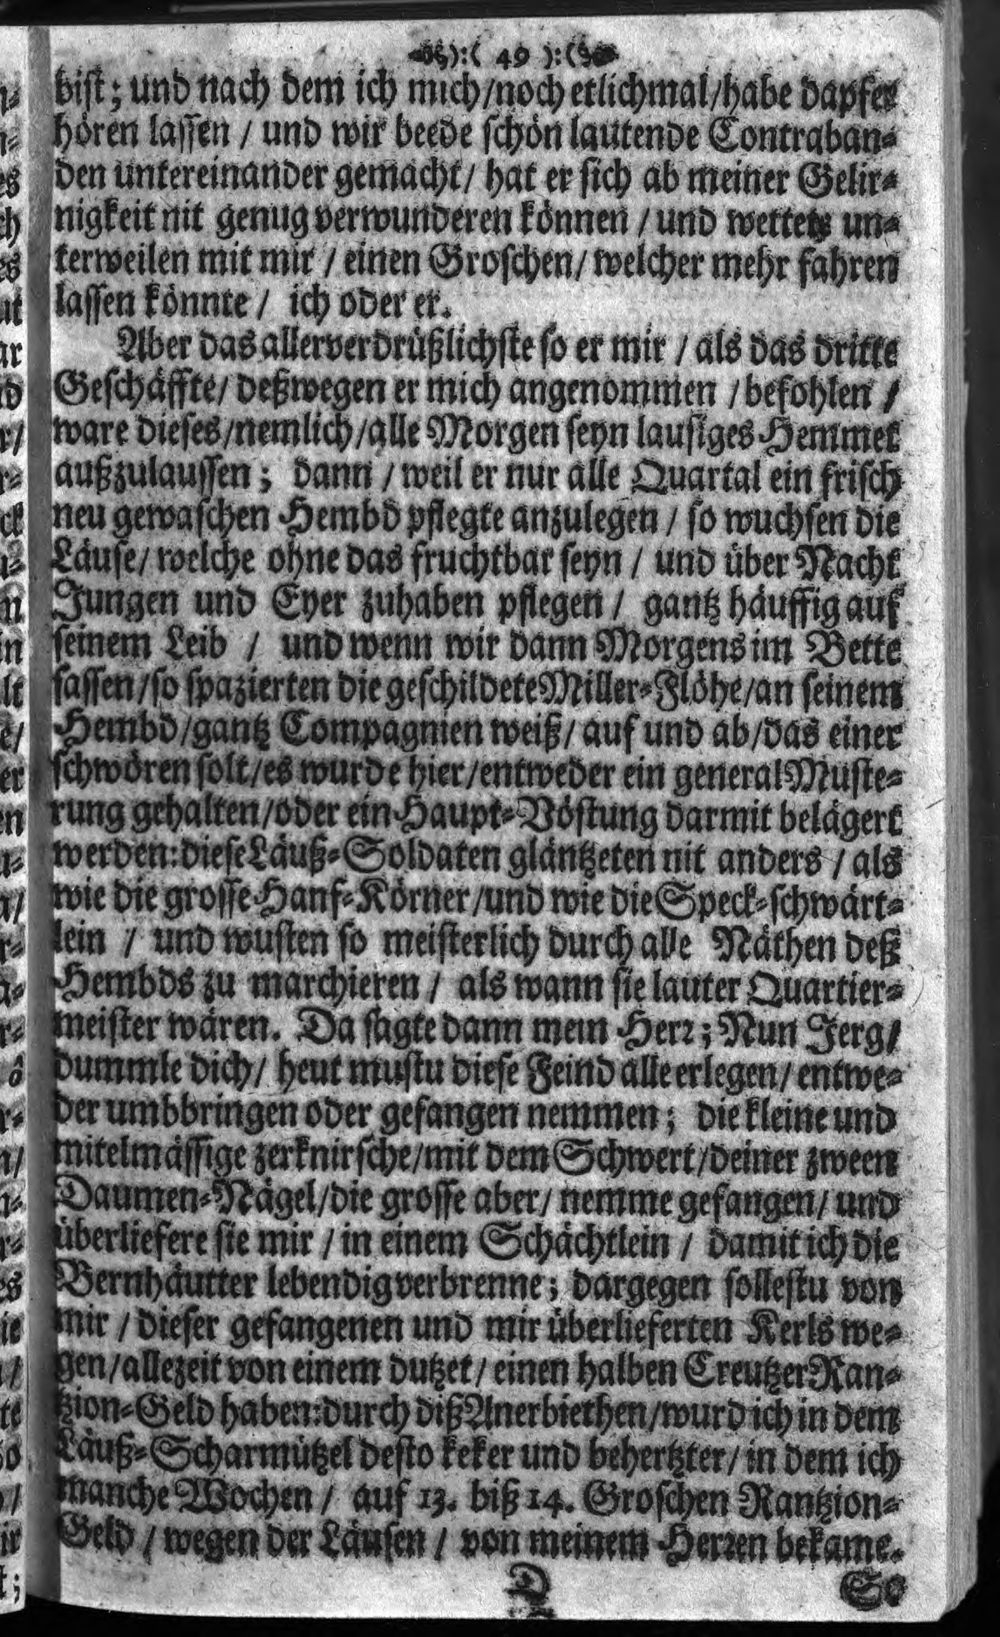 ):( 49 ):(
bist; und nach dem ich mich/noch etlichmal/habe dapfer
hören lassen / und wir beede schön lautende Contraban-
den untereinander gemacht/ hat er sich ab meiner Gelir-
nigkeit nit genug verwunderen können / und wettete un-
terweilen mit mir / einen Groschen/ welcher mehr fahren
lassen könnte / ich oder er.
Aber das allerverdrüßlichste so er mir / als das dritte
Geschäffte/ deßwegen er mich angenommen / befohlen /
ware dieses/nemlich/alle Morgen seyn lausiges Hemmet
außzulaussen; dann / weil er nur alle Quartal ein frisch
neu gewaschen Hembd pflegte anzulegen / so wuchsen die
Läuse/ welche ohne das fruchtbar seyn / und über Nacht
Jungen und Eyer zuhaben pflegen / gantz häuffig auf
seinem Leib / und wenn wir dann Morgens im Bette
sassen/so spazierten die geschildete Miller-Flöhe/an seinem
Hembd/gantz Compagnien weiß/ auf und ab/das einer
schwören solt/es wurde hier/entweder ein general Muste-
rung gehalten/oder ein Haupt-Vöstung darmit belägert
werden:diese Läuß-Soldaten gläntzeten nit anders / als
wie die grosse Hanf-Körner/und wie die Speck-schwärt-
lein / und wusten so meisterlich durch alle Näthen deß
Hembds zu marchieren / als wann sie lauter Quartier-
meister wären. Da sagte dann mein Herr; Nun Jerg/
dummle dich/ heut mustu diese Feind alle erlegen/ entwe-
der umbbringen oder gefangen nemmen; die kleine und
mitelmässige zerknirsche/mit dem Schwert/deiner zween
Daumen-Nägel/die grosse aber/ nemme gefangen/ und
überliefere sie mir / in einem Schächtlein / damit ich die
Bernhäutter lebendig verbrenne; dargegen sollestu von
mir / dieser gefangenen und mir überlieferten Kerls we-
gen/allezeit von einem dutzet/ einen halben Creutzer Ran-
tzion-Geld haben:durch diß Anerbiethen/wurd ich in dem
Läuß-Scharmützel desto keker und behertzter/ in dem ich
manche Wochen / auf 13. biß 14. Groschen Rantzion-
Geld / wegen der Läusen / von meinem Herren bekame.
D So